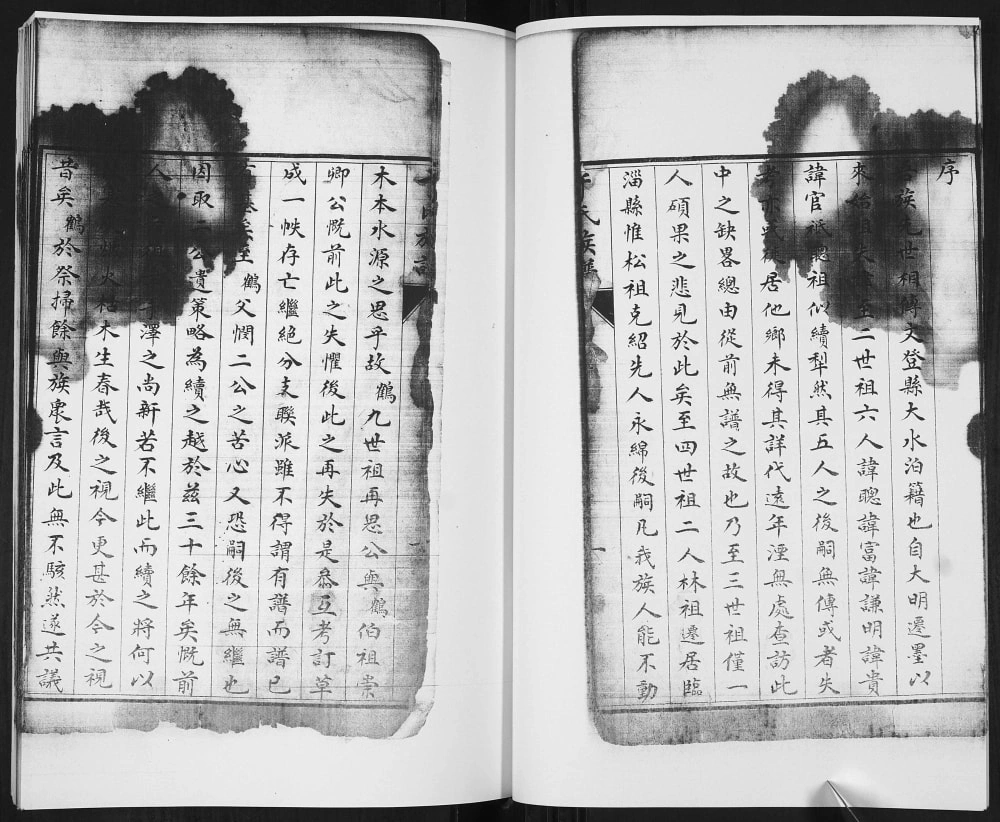 序
族 世相傳文登縣大水泊籍也自大明遷墨以
來始 至二世祖六人諱聰諱富諱謙明諱貴
諱官祇聰祖似續犁然其五人之後嗣無傳或者失
居他鄉未得其詳代遠年湮無處查訪此
中之缺畧總由從前無譜之故也乃至三世祖僅一
人碩果之悲見於此矣至四世祖二人林祖遷居臨
淄縣惟松祖克紹先人永綿後嗣凡我族人能不動
氏族譜
一
木本水源之思乎故鶴九世祖再思公與鶴伯祖崇
卿公慨前此之失懼後此之再失於是叅互考訂草
成一帙存亡繼絕分支聯派雖不得謂有譜而譜已
矣至鶴父憫二公之苦心又恐嗣後之無繼也
因取二公遺策略為續之越於茲三十餘年矣慨前
人 澤之尚新若不繼此而續之將何以
火枯木生春哉後之視今更甚於今之視
昔矣鶴於祭掃餘與族衆言及此無不駭然遂共議